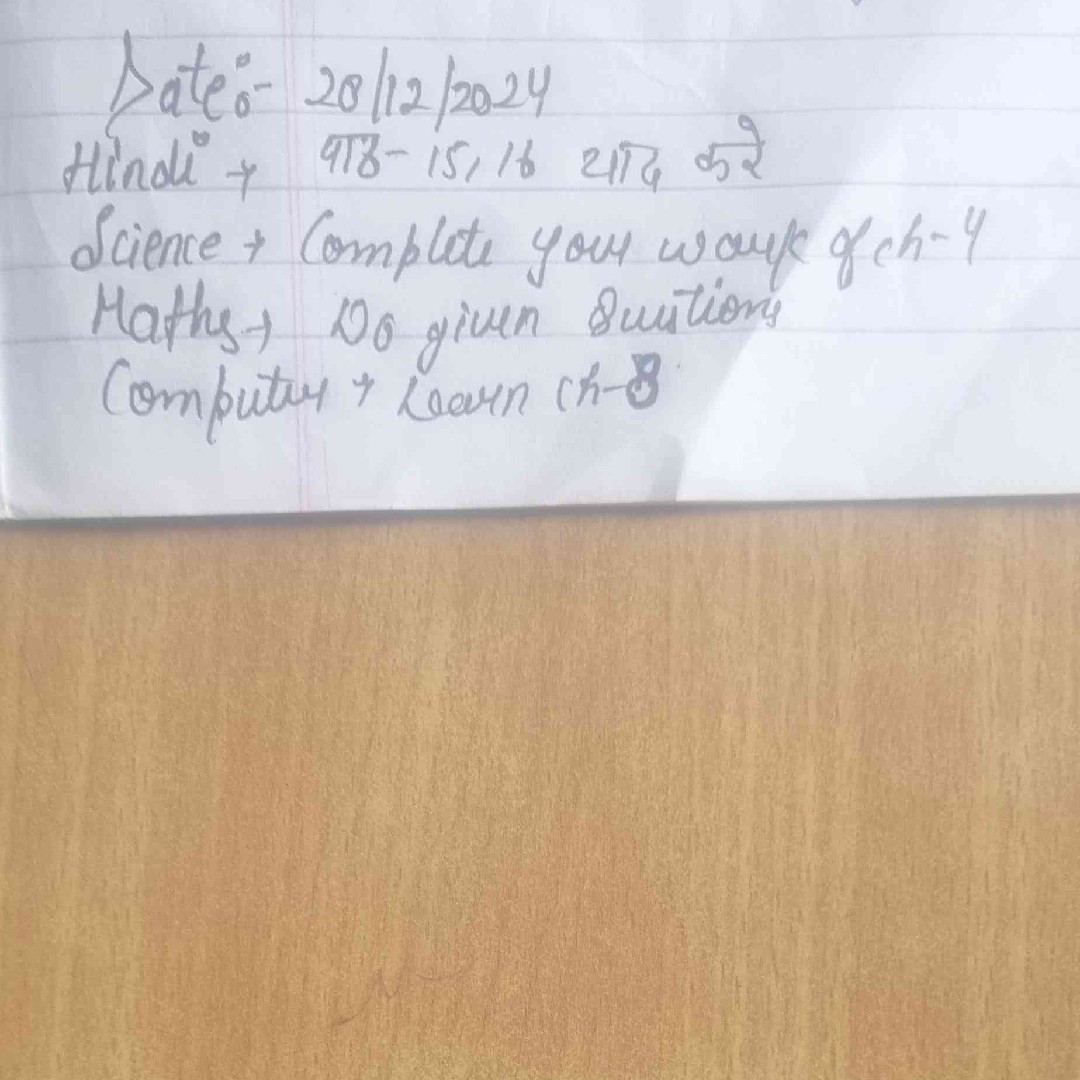 Date:- 20/12/2024
Hindi → पाठ- 15, 16 याद करे
Science → Complete your work of ch-4
Maths → Do given Questions
Computer → Learn ch-8